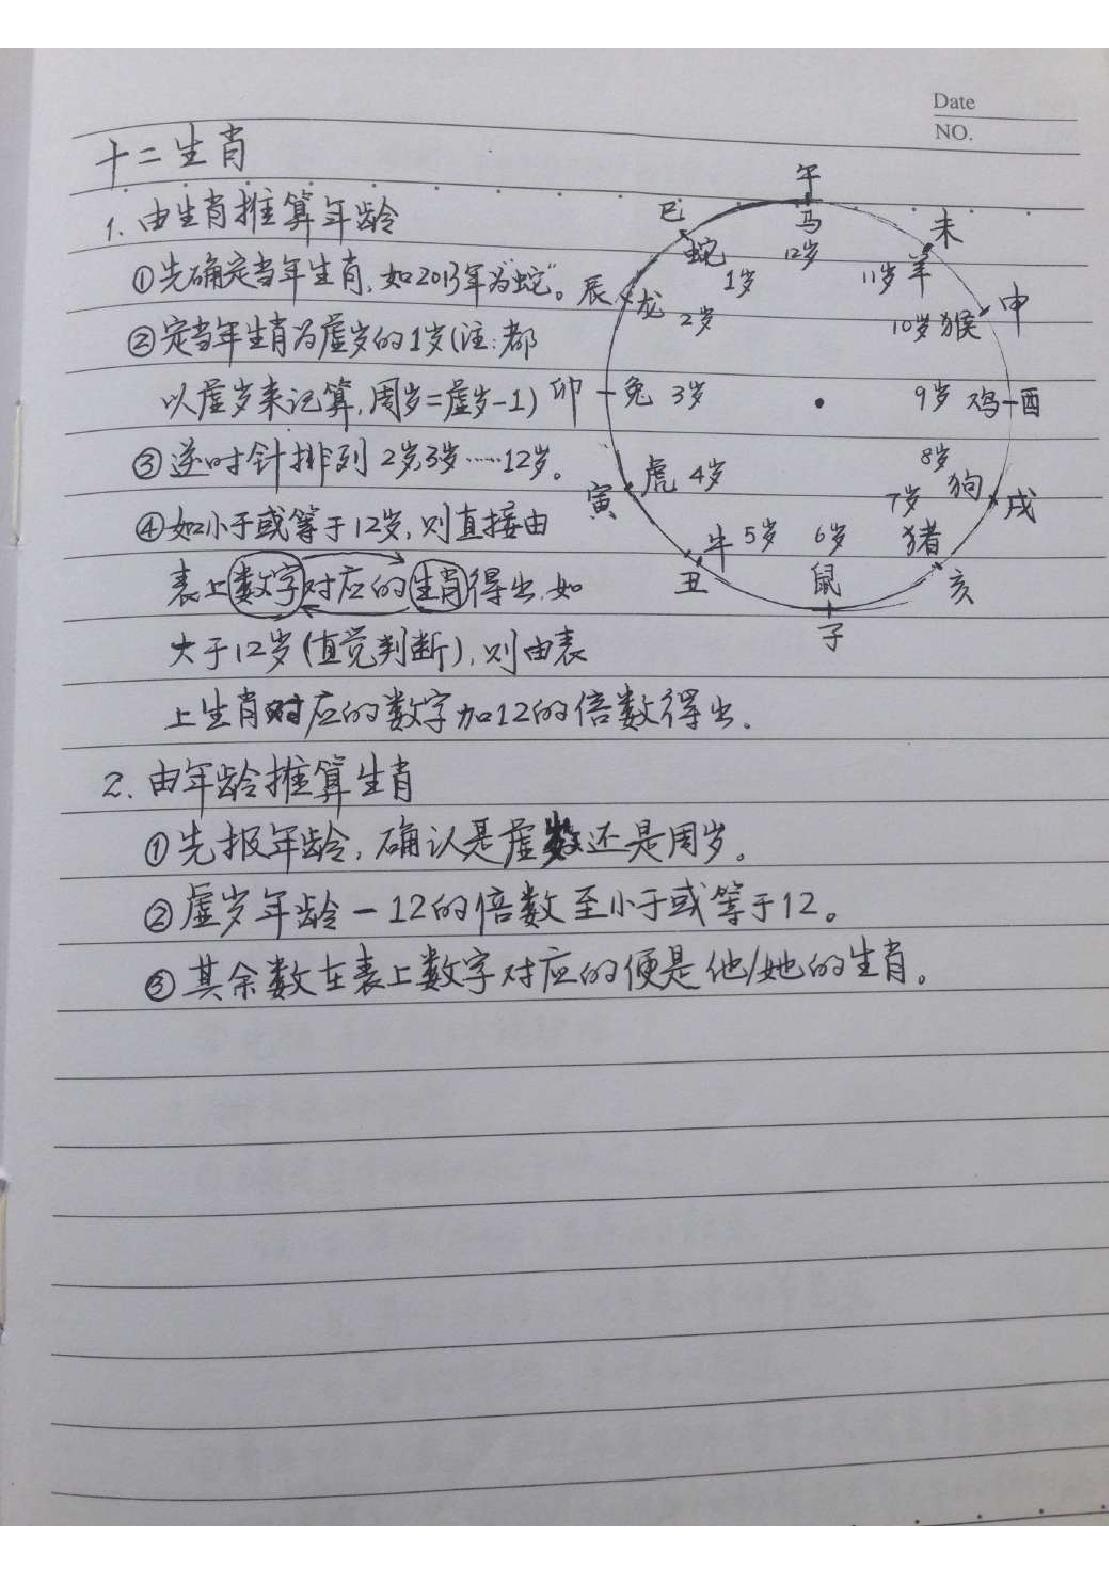 Date
NO.
十二生肖
1. 由生肖推算年龄
①先确定当年生肖,如2013年为"蛇"。
②定当年生肖为虚岁的1岁(注:都
以虚岁来记算,周岁=虚岁-1)
③逆时针排列 2岁,3岁……12岁。
④如小于或等于12岁,则直接由
表上数字对应的生肖得出,如
大于12岁(直觉判断),则由表
上生肖对应的数字加12的倍数得出.
2. 由年龄推算生肖
①先报年龄,确认是虚数还是周岁。
②虚岁年龄-12的倍数至小于或等于12。
③其余数在表上数字对应的便是他/她的生肖。
午
马
12岁
未
羊
11岁
申
猴
10岁
酉
鸡
9岁
戌
狗
8岁
亥
猪
7岁
子
鼠
6岁
丑
牛
5岁
寅
虎
4岁
卯
兔
3岁
辰
龙
2岁
巳
蛇
1岁